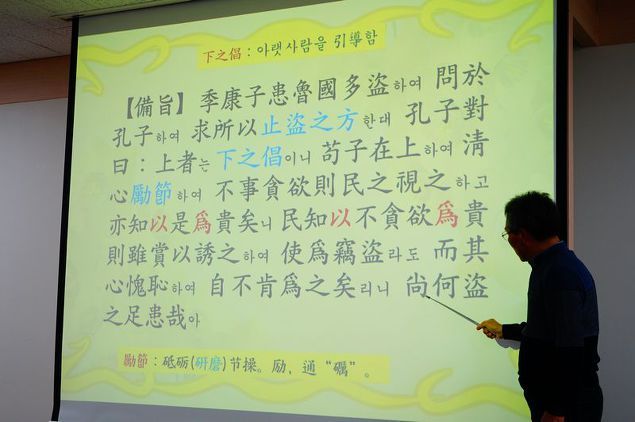 下之倡 : 아랫사람을 引導함
【備旨】 季康子患魯國多盜하여 問於
孔子하여 求所以止盜之方한대 孔子對
曰 : 上者는 下之倡이니 苟子在上하여 淸
心勵節하여 不事貪欲則民之視之하고
亦知以是爲貴矣니 民知以不貪欲爲貴
則雖賞以誘之하여 使爲竊盜라도 而其
心愧恥하여 自不肯爲之矣리니 尙何盜
之足患哉아
勵節 : 砥砺(研磨)节操。励，通“礪”。